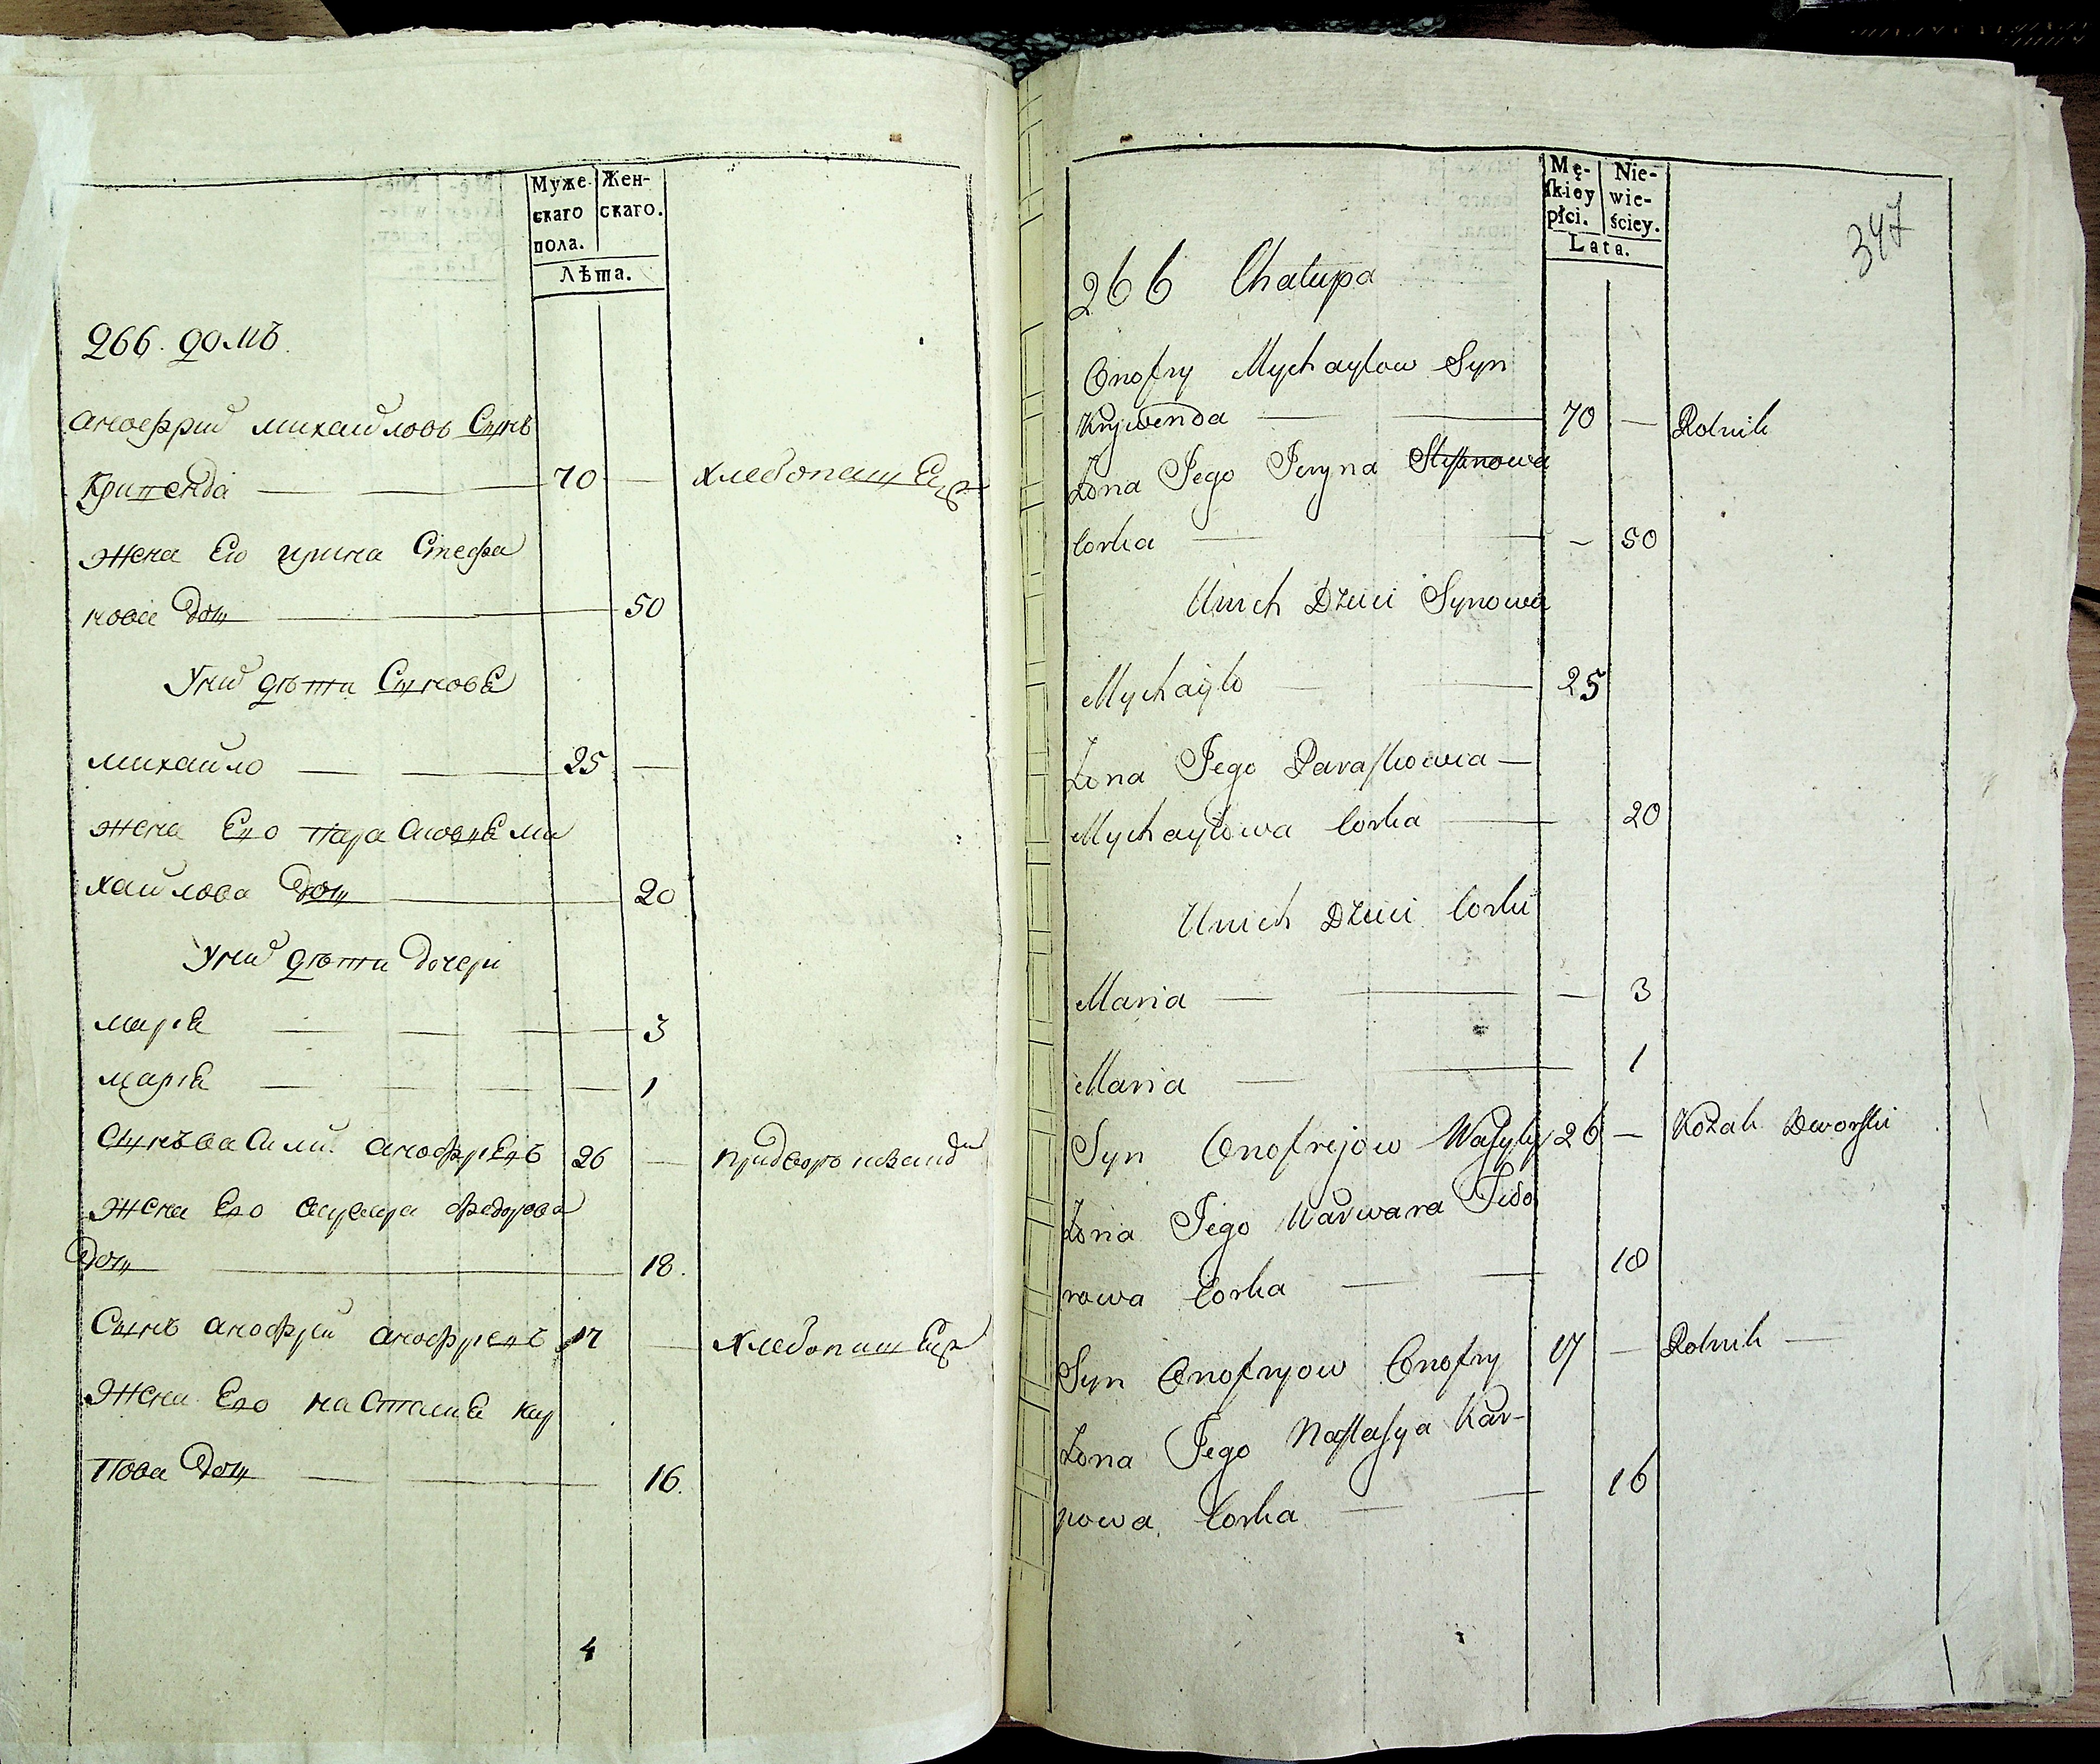 Муже-
скаго
пола.
Жен-
скаго.
Лѣта.
266. домъ
Анофрий михайловъ Сынъ
Кривенда 70 — хлебопашец
жена Его ирина Стефа
нова доч 50
У них дѣти Синове
михайло 25 —
жена Его Параскове ми
хайлова доч 20
У них дѣти дочери
марiе 3
марiе 1
Сынъ Васили Анофриевъ 26 —
жена Его варвара федорова
доч 18.
Сынъ Анофрий Анофриевъ 17 — хлебопашец
жена Его настасие кар
пова доч 16.
4
Mę-
skiey
płci.
Nie-
wie-
ściey.
Lata.
347
266 Chałupa
Onofry Mychayłow Syn
Krywenda 70 — Rolnik
Żona Jego Jeryna Stepanowa
Corka — 50
U nich Dzieci Synowie
Mychayło 25
Żona Jego Paraskowia —
Mychayłowa Corka 20
U nich Dzieci Corki
Maria — 3
Maria 1
Syn Onofrejow Wasyly 26 — Kozak Dworski
Żona Jego Warwara Fedo
rowa Corka 18
Syn Onofryow Onofry 17 — Rolnik —
Żona Jego Nastasya Kar-
powa Corka 16